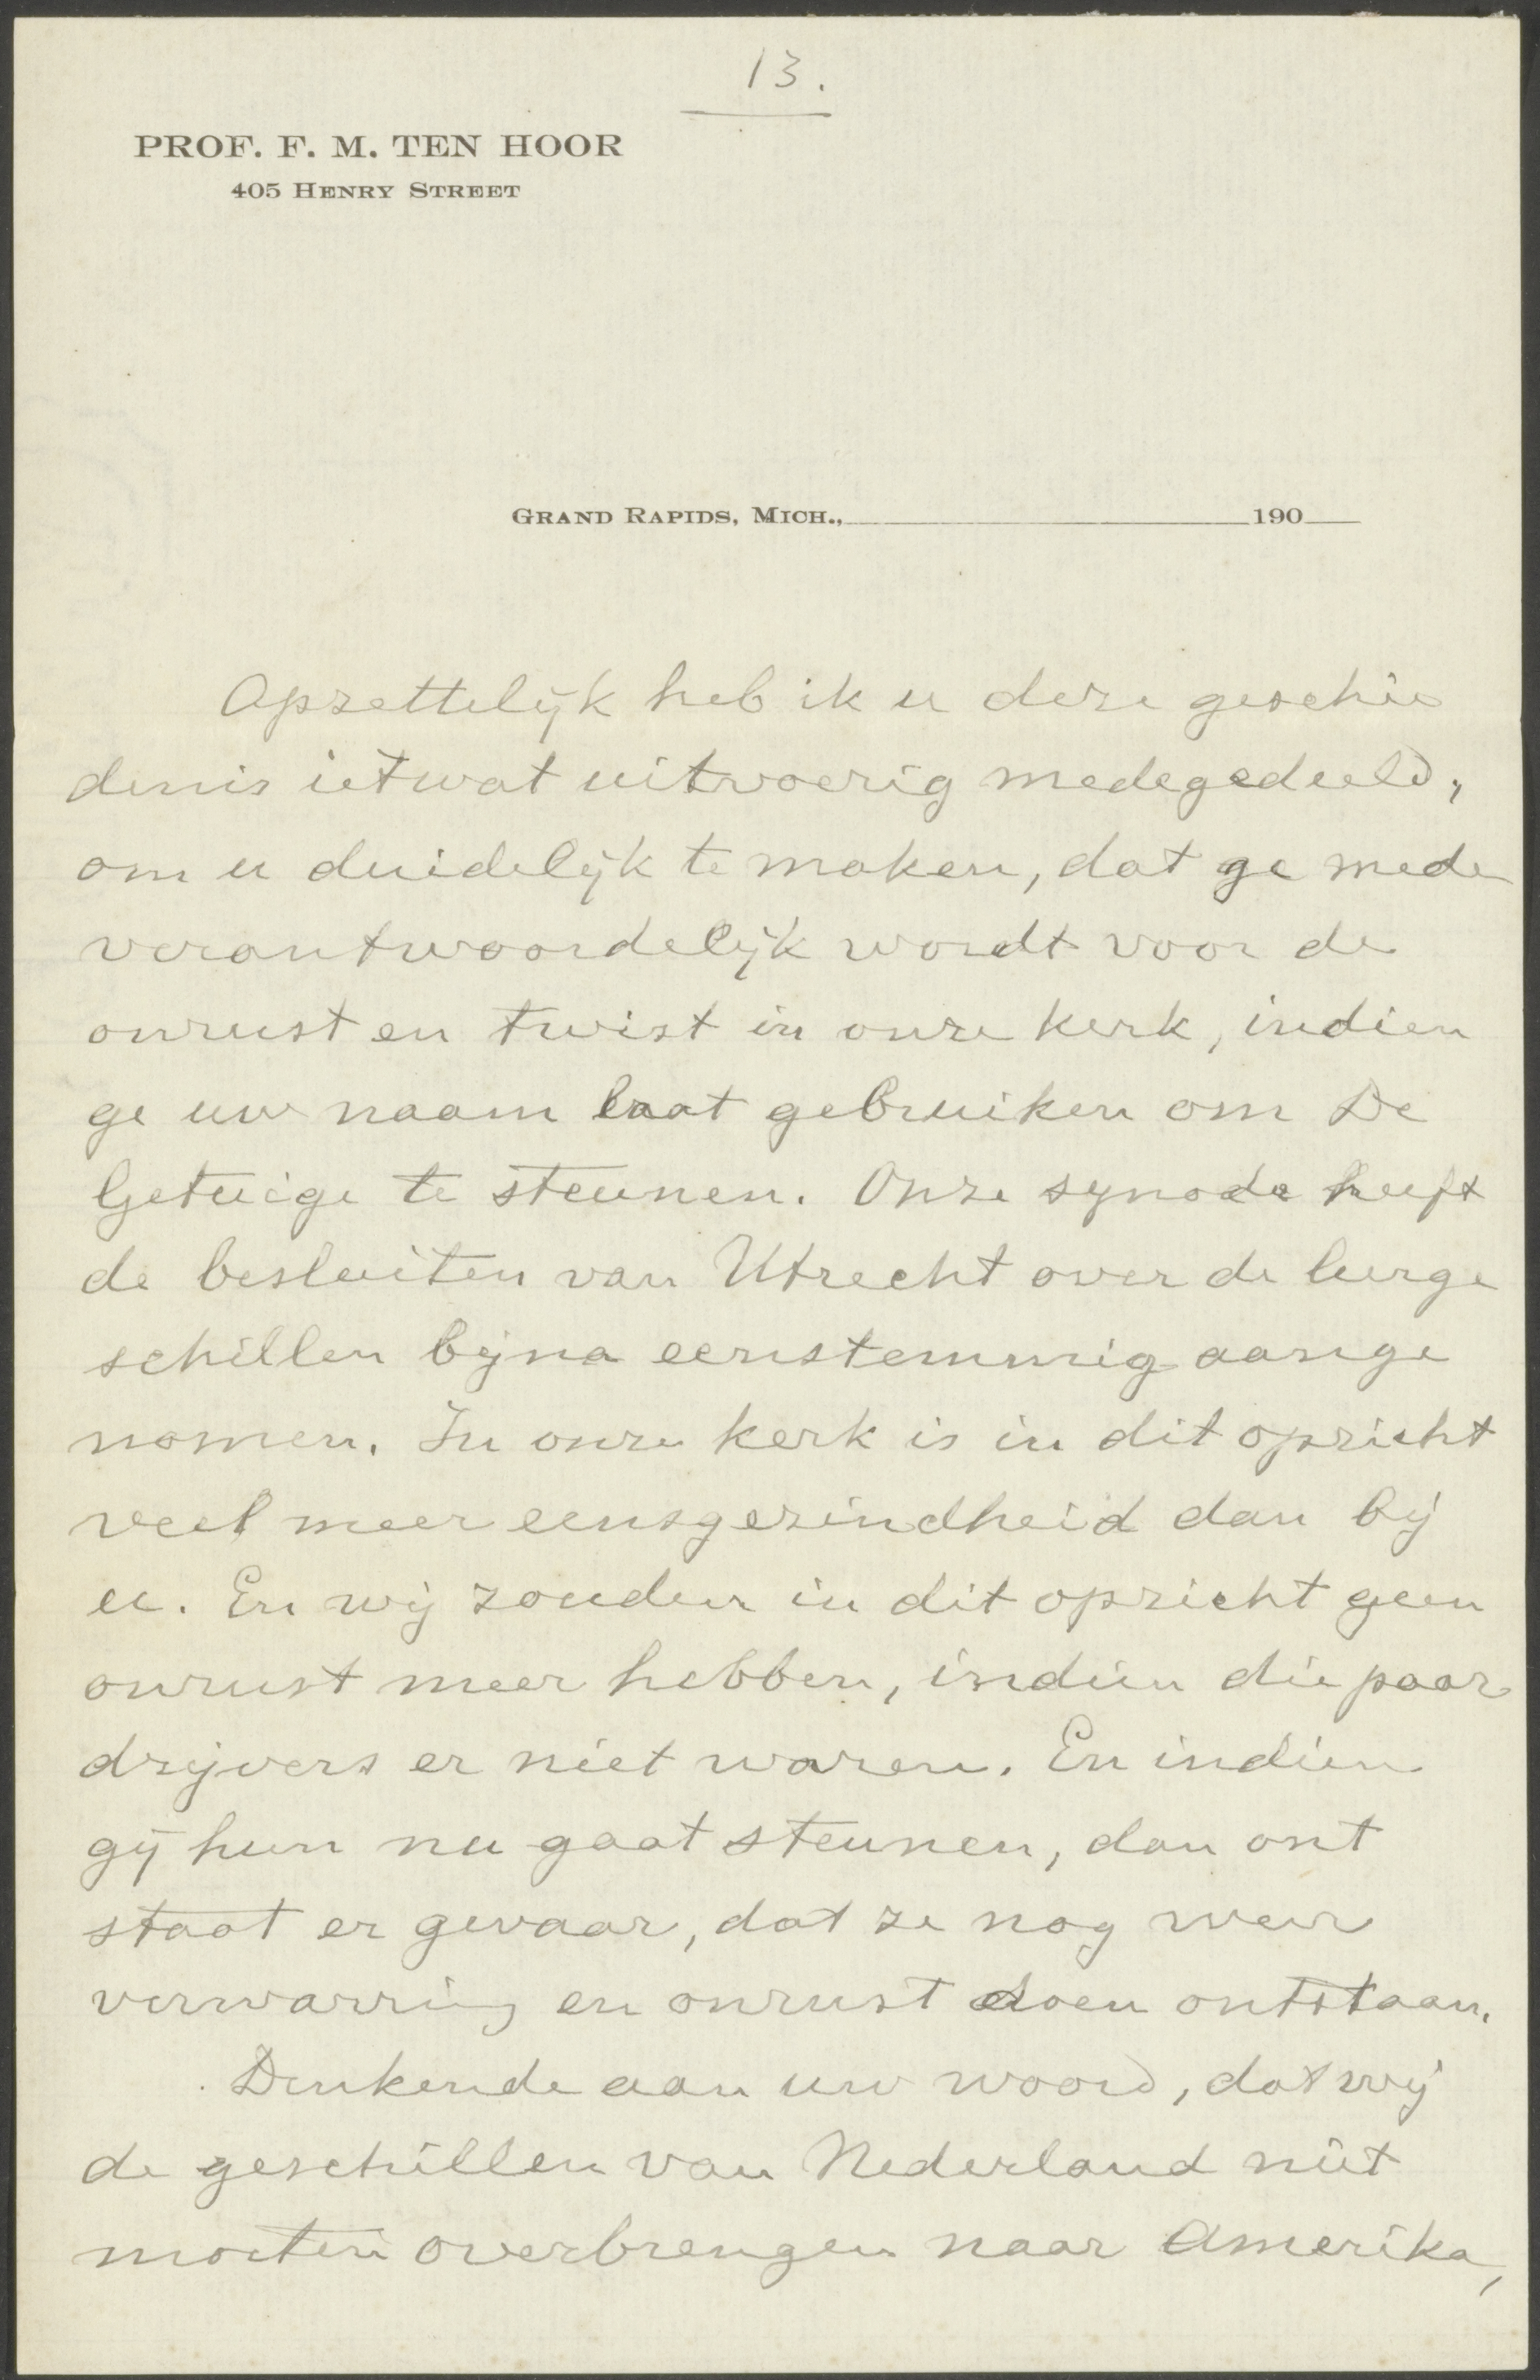 13.
PROF. F. M. TEN HOOR
405 HENRY STREET
GRAND RAPIDS, MICH., 190
Opzettelijk heb ik u deze geschie
denis ietwat uitvoerig medegedeeld,
om u duidelijk te maken, dat ge mede
verantwoordelijk wordt voor de
onrust en twist in onze kerk, indien
ge uw naam laat gebruiken om De
Getuige te steunen. Onze synode heeft
de besluiten van Utrecht over de leerge
schillen bijna eenstemmig aange
nomen. In onze kerk is in dit opzicht
veel meer eensgezindheid dan bij
u. En wij zouden in dit opzicht geen
onrust meer hebben, indien die paar
drijvers er niet waren. En indien
gij hun nu gaat steunen, dan ont
staat er gevaar, dat ze nog weer
verwarring en onrust doen ontstaan.
Denkende aan uw woord, dat wij
de geschillen van Nederland niet
moeten overbrengen naar Amerika,